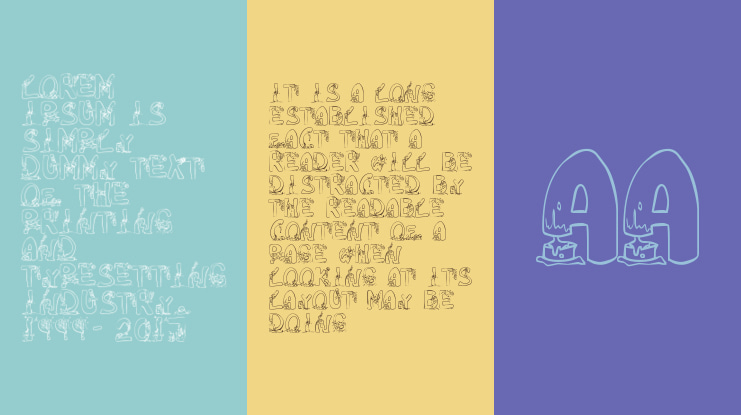 LOREM
IPSUM IS
SIMPLY
DUMMY TEXT
OF THE
PRINTING
AND
TYPESETTING
INDUSTRY.
1999- 2015
IT IS A LONG
ESTABLISHED
FACT THAT A
READER WILL BE
DISTRACTED BY
THE READABLE
CONTENT OF A
PAGE WHEN
LOOKING AT ITS
LAYOUT MAY BE
DOING
AA